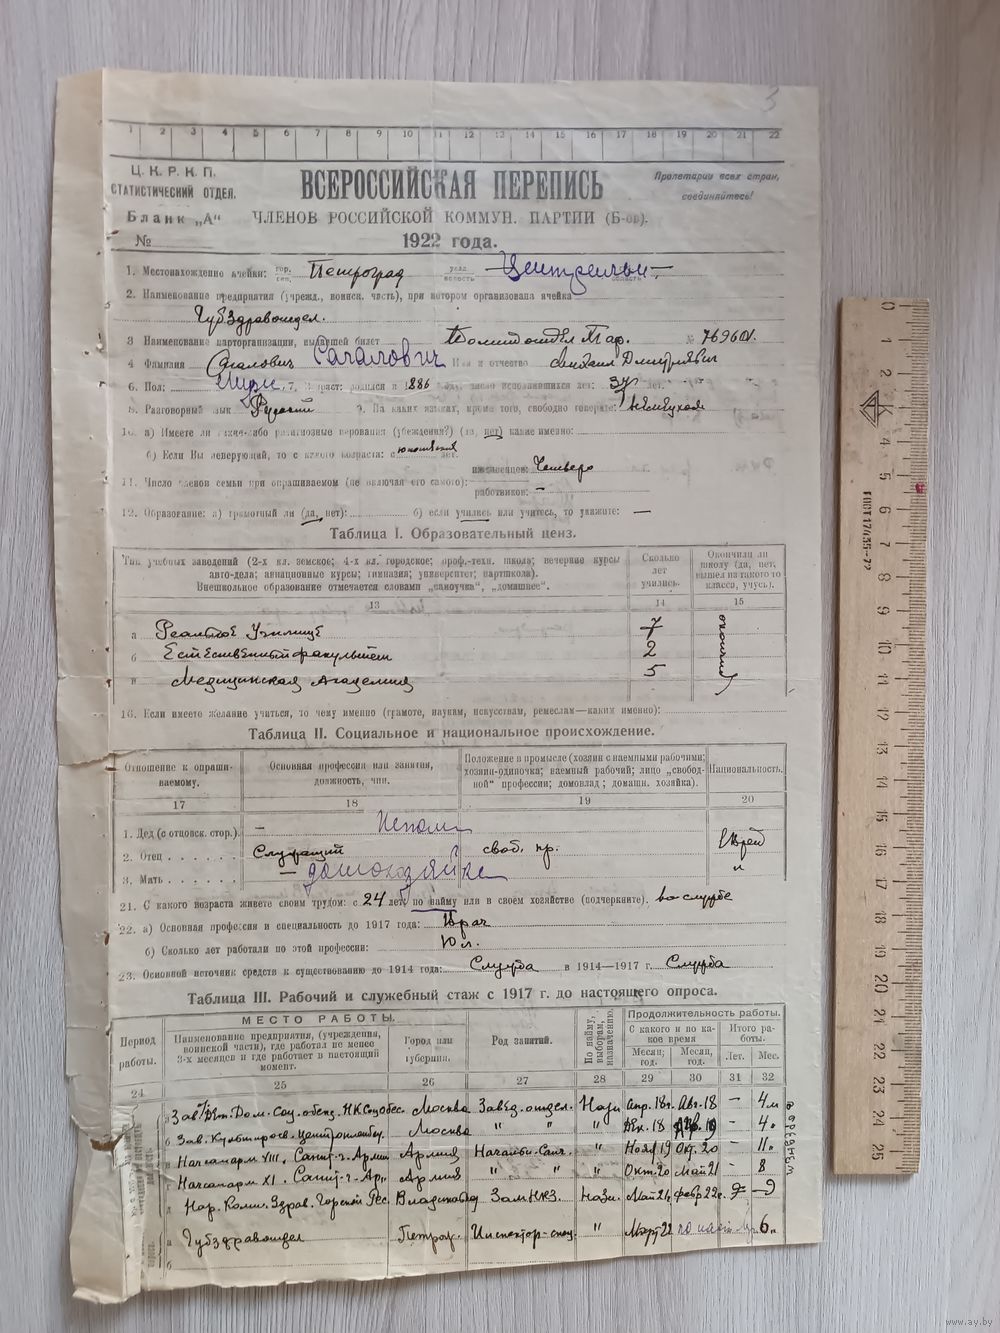 3
1 2 3 4 5 6 7 8 9 10 11 12 13 14 15 16 17 18 19 20 21 22
Ц. К. Р. К. П.
СТАТИСТИЧЕСКИЙ ОТДЕЛ.
Бланк „А“
№
ВСЕРОССИЙСКАЯ ПЕРЕПИСЬ
ЧЛЕНОВ РОССИЙСКОЙ КОММУН. ПАРТИИ (Б-ов).
1922 года.
Пролетарии всех стран,
соединяйтесь!
1. Местонахождение ячейки: гор. Петроград уезд
2. Наименование предприятия (учрежд., воинск. часть), при котором организована ячейка
Губздравотдел.
3 Наименование парторганизации, выдавшей билет Политотдел №
4 Фамилия Сагалович Сагалович Имя и отчество Дмитриевич
6. Пол: муж. 7. Возраст: родился в 1886 году, число исполнившихся лет: лет.
8. Разговорный язык Русский 9. На каких языках, кроме того, свободно говорите:
10. а) Имеете ли какие-либо религиозные верования (убеждения?) (да, нет) какие именно:
б) Если Вы неверующий, то с какого возраста: с юношеских лет.
11. Число членов семьи при опрашиваемом (не включая его самого): иждивенцев: Четверо
работников: —
12. Образование: а) грамотный ли (да, нет): б) если учились или учитесь, то укажите: —
Таблица I. Образовательный ценз.
Тип учебных заведений (2-х кл. земское; 4-х кл. городское; проф.-техн. школа; вечерние курсы
авто-дела; авиационные курсы; гимназия; университет; партшкола).
Внешкольное образование отмечается словами „самоучка“, „домашнее“.
Сколько лет учились.
Окончили ли школу (да, нет, вышел из такого-то класса, учусь).
13 14 15
а Реальное Училище 7
б Естественный факультет 2
в Медицинская Академия 5
окончил
16. Если имеете желание учиться, то чему именно (грамоте, наукам, искусствам, ремеслам—каким именно):
Таблица II. Социальное и национальное происхождение.
Отношение к опрашиваемому.
Основная профессия или занятия, должность, чин.
Положение в промысле (хозяин с наемными рабочими; хозяин-одиночка; наемный рабочий; лицо „свободной“ профессии; домовлад; домашн. хозяйка).
Национальность.
17 18 19 20
1. Дед (с отцовск. стор.). —
2. Отец Служащий своб. пр. Еврей
3. Мать — домохозяйка "
21. С какого возраста живете своим трудом: с 24 лет, по найму или в своем хозяйстве (подчеркните). на службе
22. а) Основная профессия и специальность до 1917 года: Врач
б) Сколько лет работали по этой профессии: 10 л.
23. Основной источник средств к существованию до 1914 года: Служба в 1914—1917 г. Служба
Таблица III. Рабочий и служебный стаж с 1917 г. до настоящего опроса.
Период работы.
МЕСТО РАБОТЫ.
Наименование предприятия, (учреждения, воинской части), где работал не менее 3-х месяцев и где работает в настоящий момент.
Город или губерния.
Род занятий.
По найму, выборам, назначению.
Продолжительность работы.
С какого и по какое время
Месяц, год. Месяц, год.
Итого работы.
Лет. Мес.
24 25 26 27 28 29 30 31 32
а Зав. Дет. Дом. Соц. обесп. НКСобес. Москва Завед. отдел. Назн Апр. 18г. Авг. 18 — 4 м
б Зав. Культпросв. Москва " " " Дек. 18 — 4 "
в Начсанарм VIII. Санит-г. Армии Армия " Нояб 19 Окт. 20 — 11 "
г Начсанарм XI. Санит-г. Ар. Армия " " " Окт. 20 Май 21 — 8
д Нар. Комис. Здрав. Горской Рес. Владикавказ Зам. НКЗ. Назн. Май 21г. февр 22г.
Губздравотдел Петрог. Инспектор " Март 22 6 "
0 1 2 4 5 6 7 8 9 10 11 12 13 14 15 16 17 18 19 20 21 22 23 24 25
ГОСТ 17435-72
www.ay.by